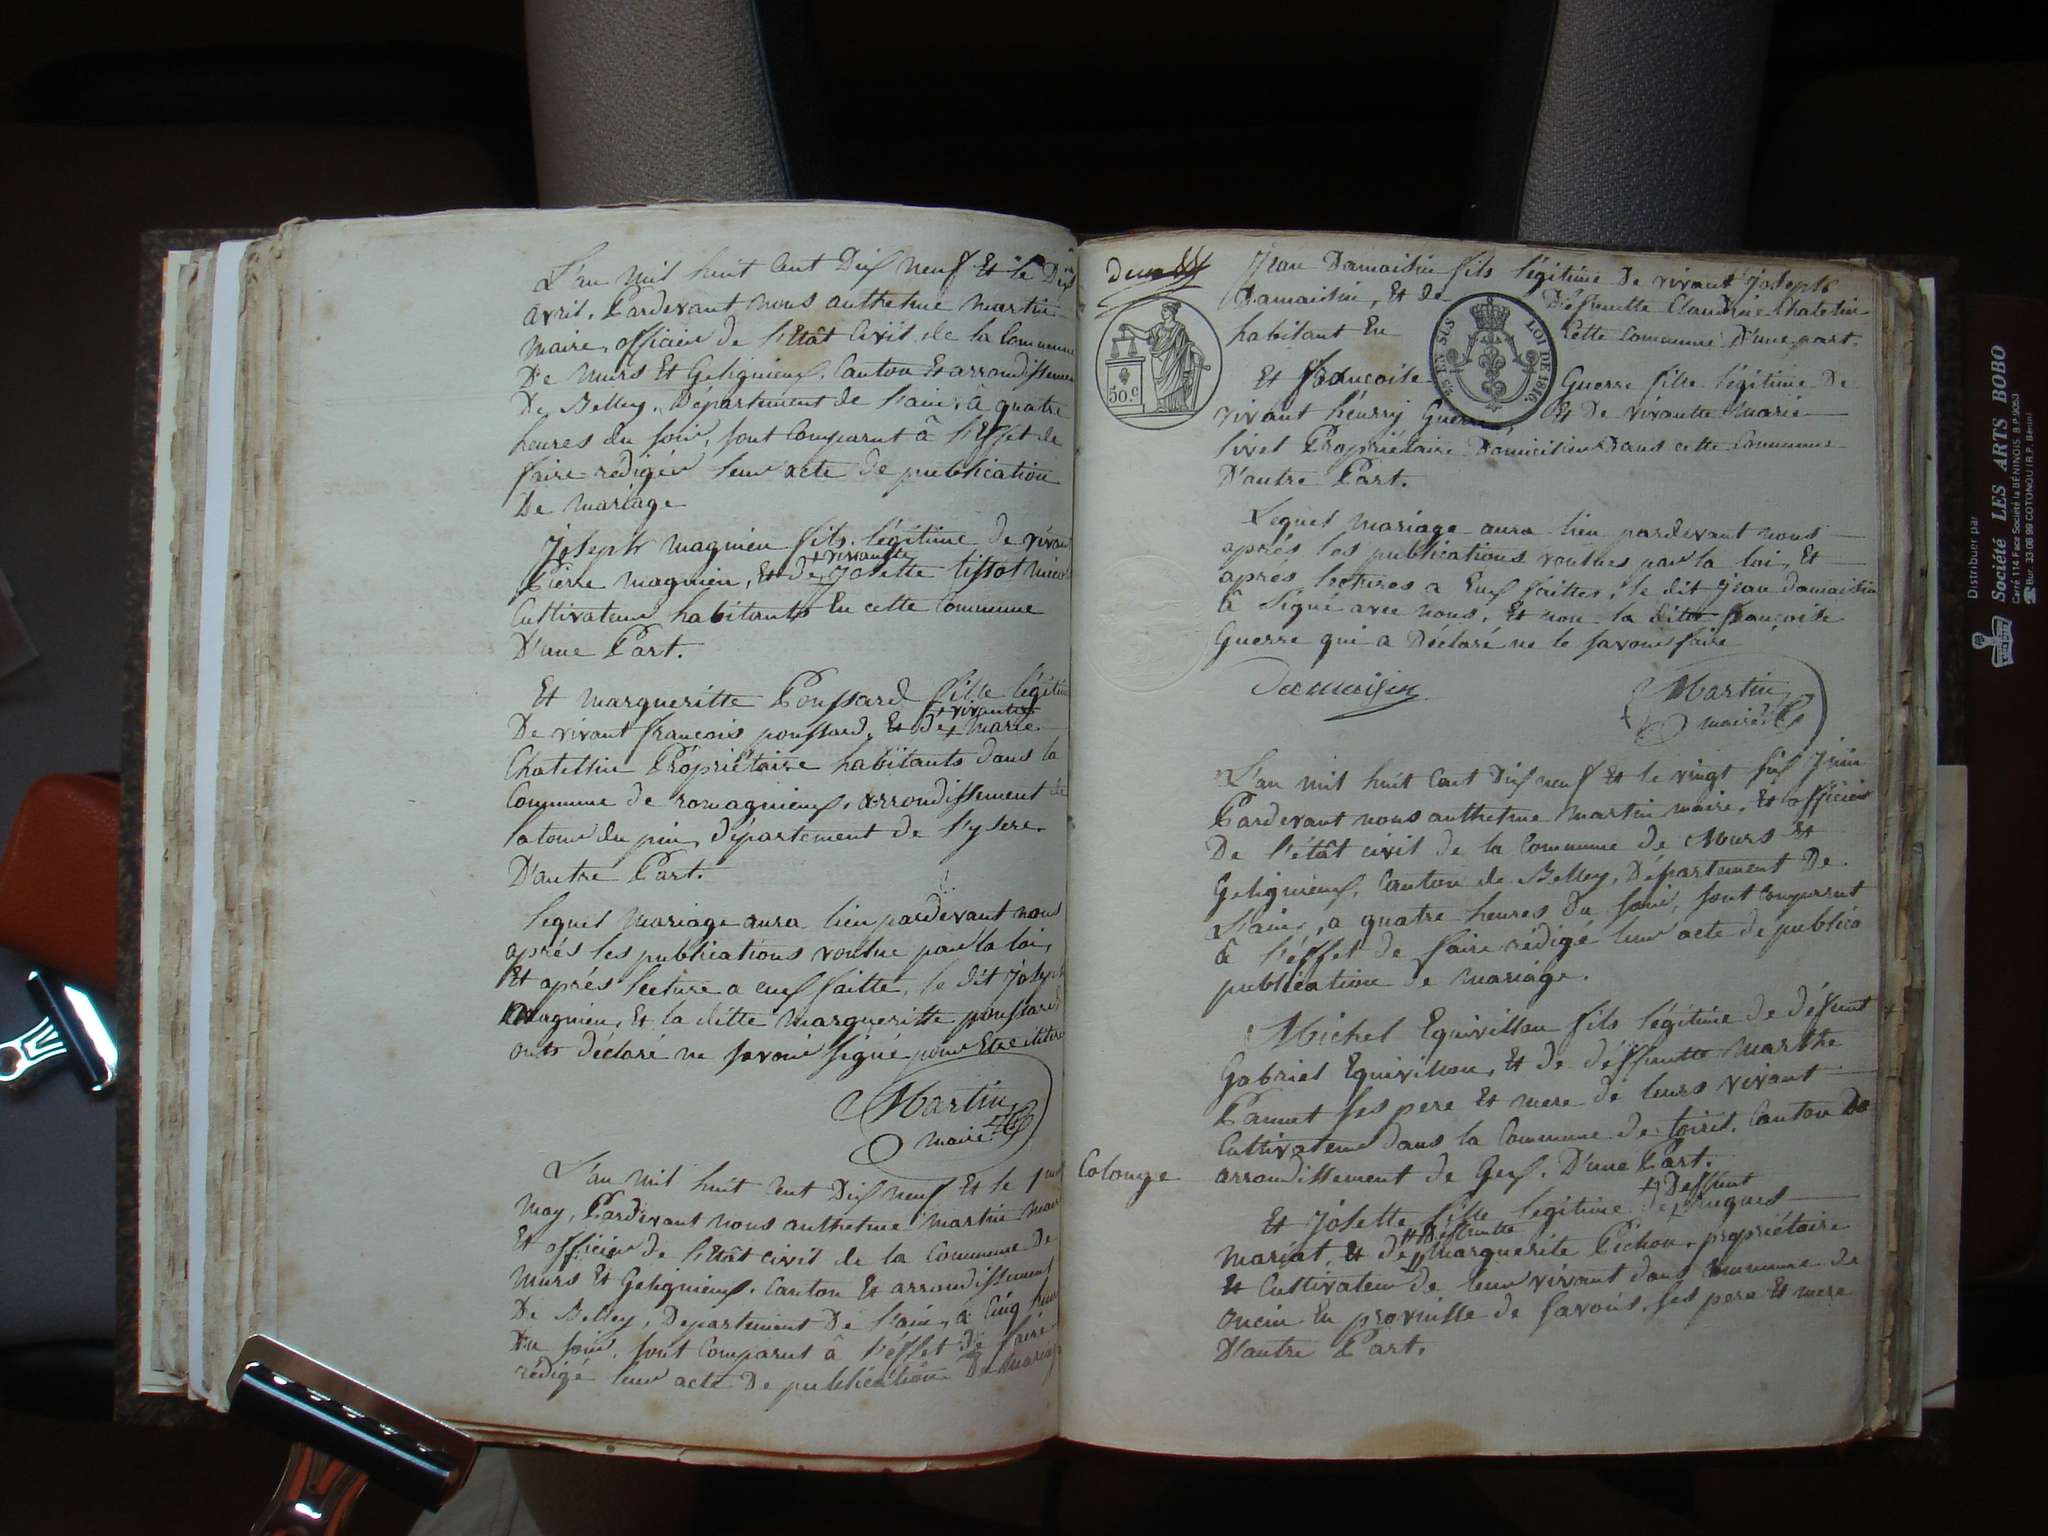 L'an mil huit Cent Dix neuf Et le Dix
avril, Pardevant nous anthetme martin
maire, officier de l'Etât Civil de la Commune
De Murs Et Gelignieux, Canton Et arrondissemen
De Belley, Departement de l'ain, à quatre
heures du soir, sont Comparut â l'Effet de
faire rédigér leur acte de publication
De mariage
Joseph magnien fils légitime de vivan
+ vivantte
Pierre magnien, Et de + Josette tissot
Cultivateur habitants En cette Commune
D'une Part.
Et margueritte Poussard fille légitim
+ vivantte
De vivant francois poussard, Et de + marie
Chatellin Propriétaire habitants dans la
Commune de romagnieux, arrondissement de
latour du pin, département de l'ysere.
D'autre Part.
lequel mariage aura lieu pardevant nous
aprés les publications voulue par la loi,
Et aprés lecture a eux faitte, le dit Joseph
Magnien, Et la ditte margueritte poussard
onts déclaré ne savoir signé pour Etre illitéré
Martin
maire
L'an mil huit Cent Dix neuf Et le 1er
May, Pardevant nous anthetme martin mair
Et officier de l'Etât civil de la Commune De
Murs Et Gelignieux, Canton Et arrondissement
De Belley, Departement De l'ain, a Cinq heur
Du soir, sont Comparut â l'éffet de faire
rédigé leur acte De publication De mariag
deux
Jean Damaisin fils légitime De vivant Joseph
Damaisin, Et de Défuntte Claudine Chatelin
habitant En Cette Commune D'une part.
50.c
25 EN SUS
LOI DE 1816.
Et françoise Guerre fille légitime De
vivant henry Guerre, Et De vivantte Marie
livet Propriétaire Domicilier Dans cette Commune
D'autre Part.
Lequel Mariage aura lieu pardevant nous
aprés les publications voulues par la loi, Et
aprés lectures a Eux faittes, le dit Jean Damaisin
â Signé avec nous, Et non la ditte françoise
Guerre qui a Déclaré ne le savoir faire
Damaisin
Martin
maire
L'an mil huit Cent Dix neuf Et le vingt six Juin
Pardevant nous anthetme Martin maire, Et officier
De l'étât civil de la Commune de Murs Et
Gelignieux, Canton de Belley, Département De
L'ain, a quatre heures Du soir, sont Comparut
â l'éffet de faire rédigé leur acte de publica
publication de mariage.
Michel Equivillon fils légitime de défunt
Gabriel Equivillon, Et de déffuntte Marthe
Pannet ses pere Et mere de leurs vivant
Cultivateur dans la Commune de toiret, Canton De
Colonge
arrondissement de Gex. D'une Part.
+ Deffunt
Et Josette fille légitime de + hugues
++ Deffuntte
Mariat, Et de ++ Marguerite Pichon, propriétaire
Et Cultivateur de leur vivant dans Commune de
oncin En provinsse de savois, ses pere Et mere
D'autre Part.
Distribuer par
Société LES ARTS BOBO
Carré 114 Face Société la BÉNINOIS B.P. 9053
☎ Bur. 33 08 99 COTONOU (R.P. Bénin)